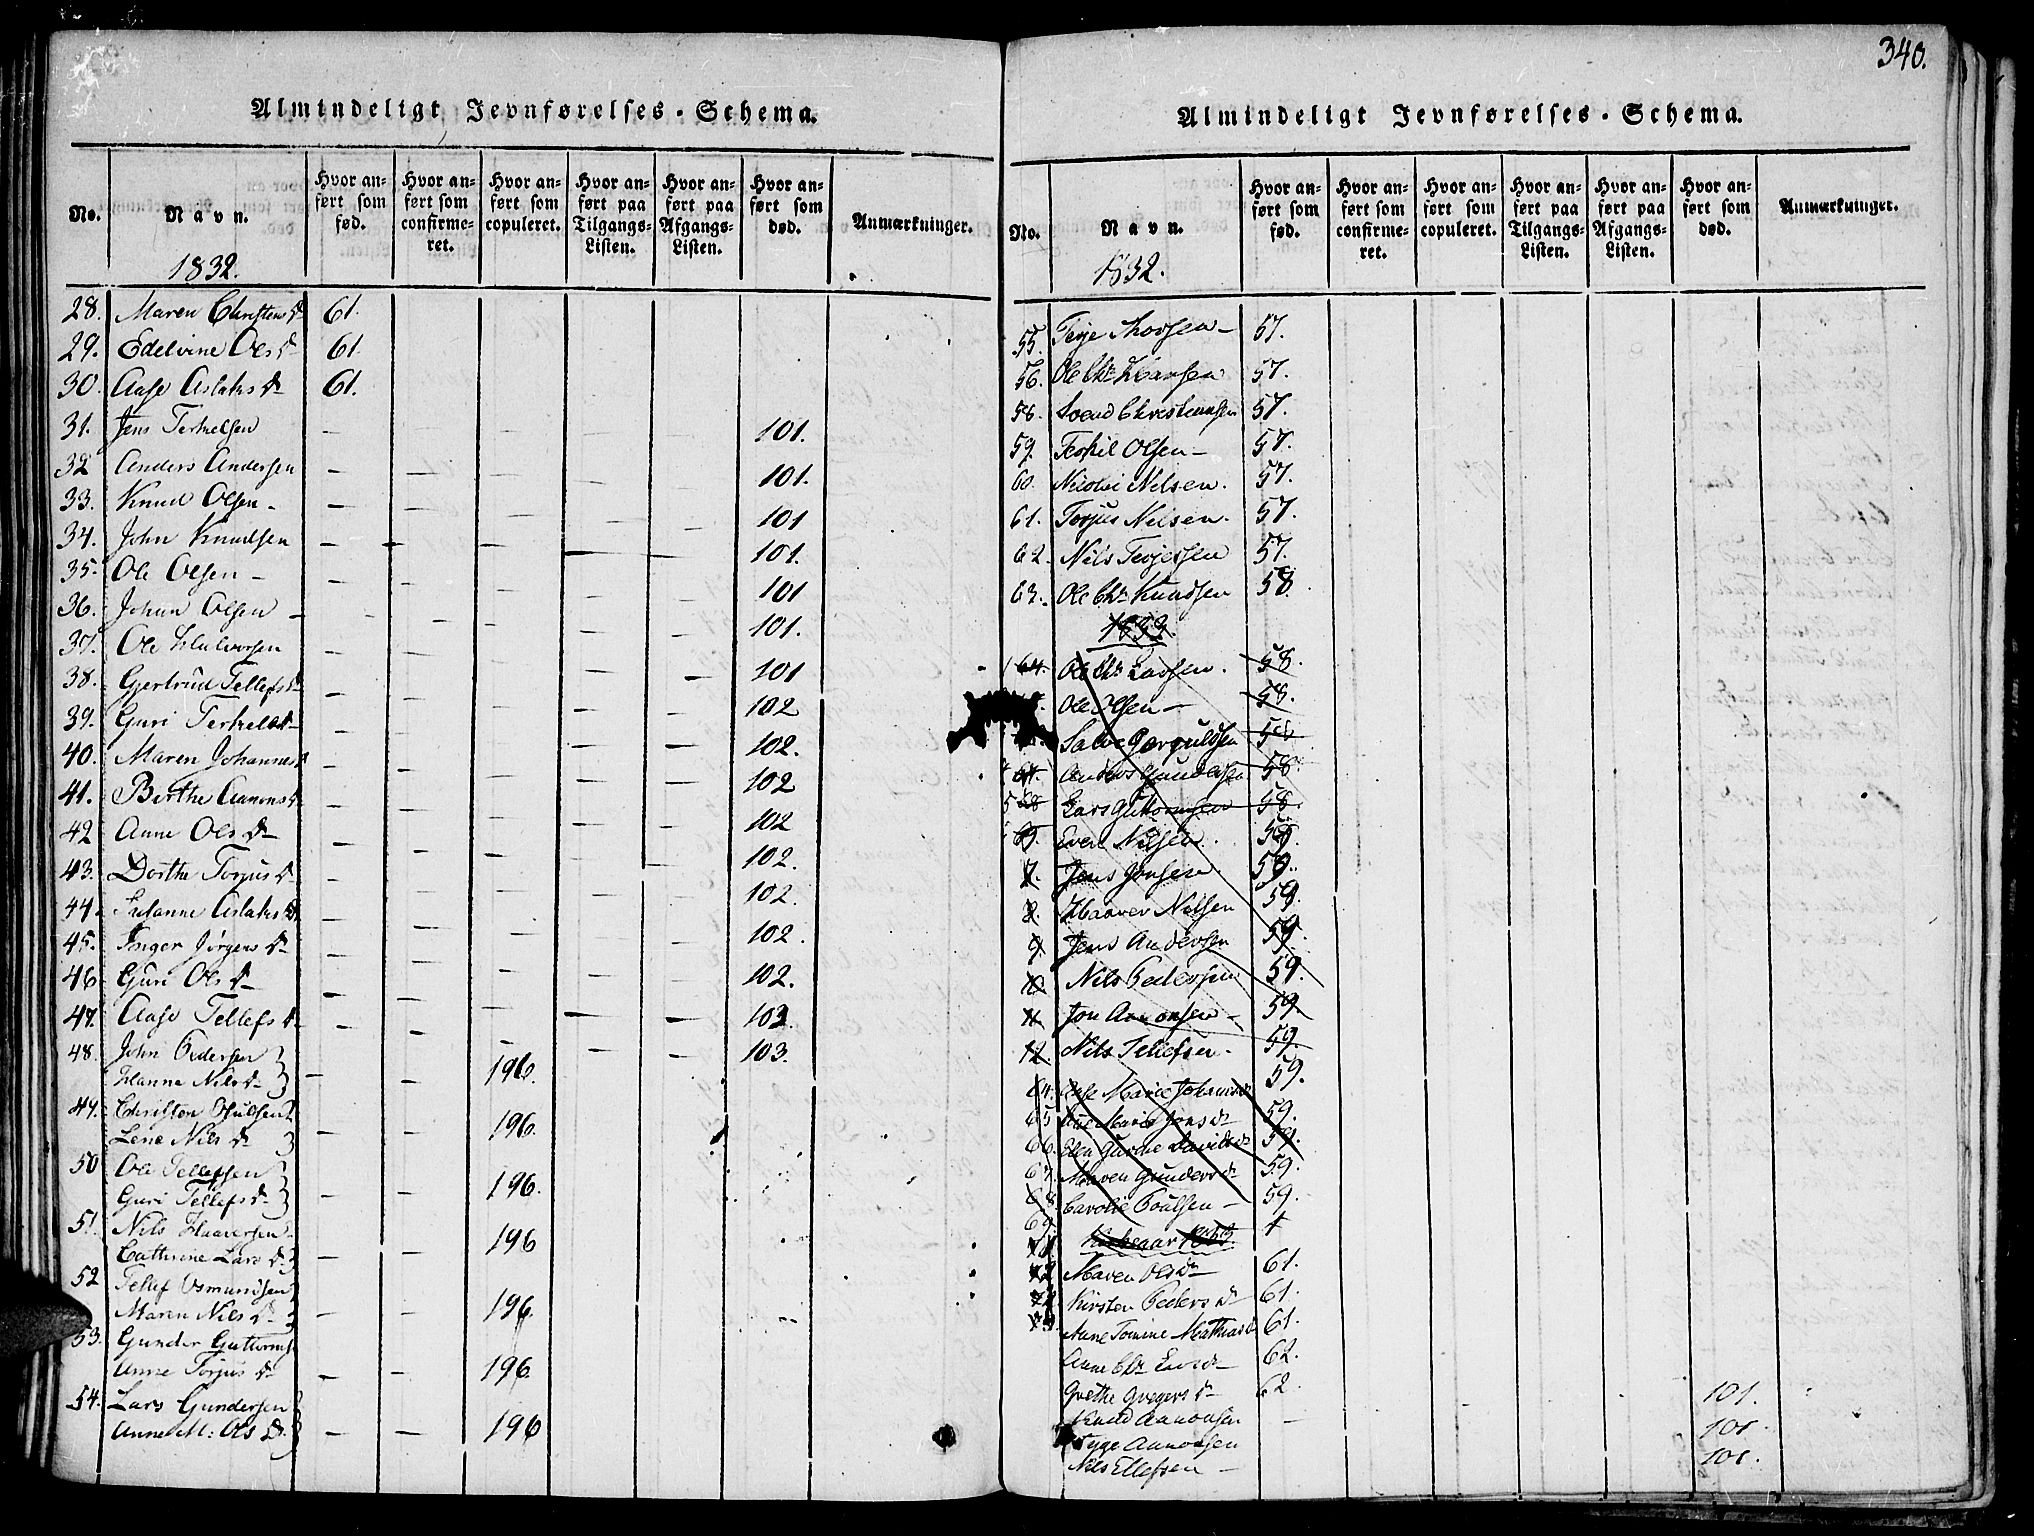 340.
Almindeligt Jevnførelses-Schema.
No. Navn. Hvor anført som fød. Hvor anført som confirmeret. Hvor anført som copuleret. Hvor anført paa Tilgangs-Listen. Hvor anført paa Afgangs-Listen. Hvor anført som død. Anmærkninger.
1832.
28. Maren Christensd 61.
29. Edelvine Olsd 61
30. Aase Aslaksd 61.
31. Jens Terkelsen 101.
32 Anders Andersen — — — — — 101.
33. Knud Olsen — — — — — 101
34. John Knudsen — — — — — 101.
35. Ole Olsen — — — — — 101
36. Johan Olsen — — — — — 101.
37. Ole Halvorsen — — — — — 101
38. Gjertrud Tellefsd — — — — — 102
39. Guri Terkelsd — — — — — 102.
40. Maren Johannesd — — — — — 102
41. Birthe Aanonsd — — — — — 102
42 Anne Olsd — — — — — 102.
43. Dorthe Torjusd — — — — — 102.
44. Susanne Aslaksd — — — — — 102.
45. Inger Jörgensd — — — — — 102.
46 Guri Olsd — — — — — 103
47. Aase Tellefsd — — — — — 103.
48. John Pedersen
Hanne Nilsd — — 196.
49. Christen
Lene Nilsd — — 196.
50 Ole Tellefsen
Guri Tellefsd — — 196.
51. Nils Haaversen
Cathrine Larsd — — 196
52 Tellef Osmundsen
Maren Nilsd — — 196.
53. Gunder Guttorms
Anne Torjusd — — 196.
54. Lars Gundersen
Anne M: Olsd — — 196
Almindeligt Jevnførelses-Schema.
No. Navn. Hvor anført som fød. Hvor anført som confirmeret. Hvor anført som copuleret. Hvor anført paa Tilgangs-Listen. Hvor anført paa Afgangs-Listen. Hvor anført som død. Anmærkninger.
1832.
55. Terje Thorsen — 57.
56. Ole Chr Hansen 57.
58. Svend Christiansen 57.
59. Terkil Olsen — 57.
60. Nicolai Nilsen. 57.
61. Torjus Nilsen. 57.
62. Nils Terjessen 57.
63. Ole Chr Knudsen 58.
1833.
64. Ole Chr Larsen. 58.
Ole Olsen — 58.
Salve 58
Anders Gundersen 58.
5 68 Lars Guttormsen 58.
69. Even Nilsen. 59
7. Jens Jensen. 59.
8. Haaver Nilsen 59.
9. Jens Andersen 59.
10. Nils Pedersen 59.
11. Jon Aanonsen — 59.
12. Nils Tellefsen. 59.
64. Marie Johannesd 59.
65 Marie Jensd 59.
66. Davidsd 59.
67. Maren Gundersd 59.
68. Poulsen — 59.
69.
Kirkeaar 1833.
Maren Olsd 61.
Kirsten Pedersd 61.
Anne Tomine Mathiasd 61.
Anne Chr 62.
Grethe Gregersd 62.
Knud Aanonsen — 101.
Aanonsen 101.
Nils Ellefsen — 101.